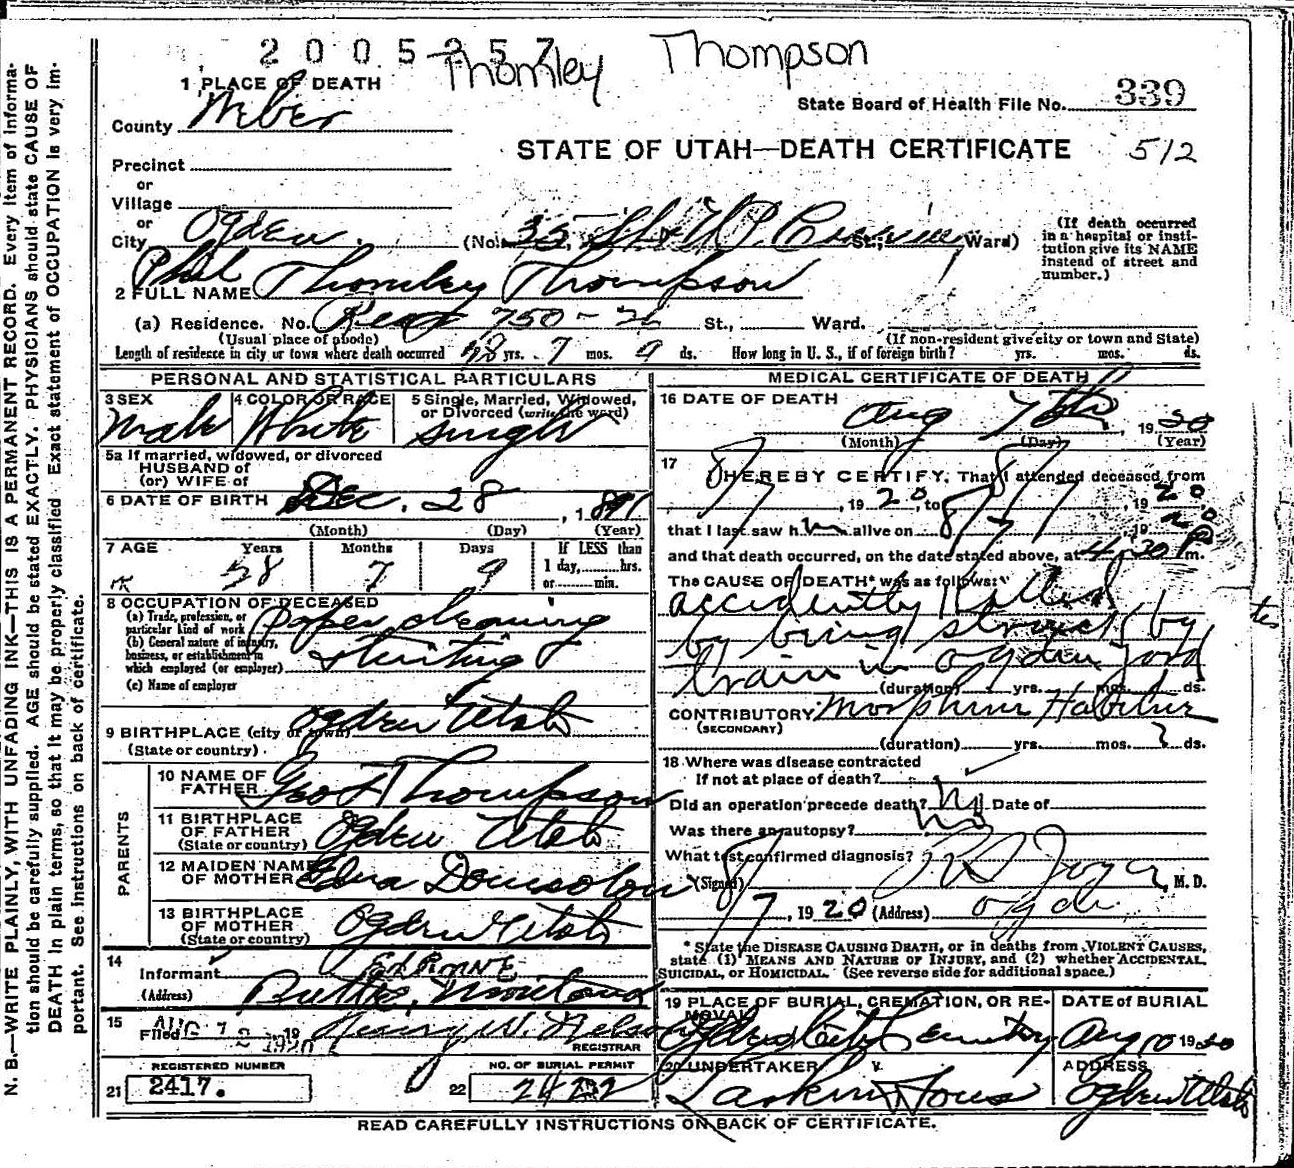 2005257
Thomley Thompson
1 PLACE OF DEATH
State Board of Health File No. 339
County Weber
STATE OF UTAH—DEATH CERTIFICATE 512
Precinct
or
Village
or
City Ogden. (No. 35, St.; Ward)
(If death occurred in a hospital or institution give its NAME instead of street and number.)
2 FULL NAME Phil Thomley Thompson
(a) Residence. No. Rear 750 - 26 St., Ward.
(Usual place of abode) (If non-resident give city or town and State)
Length of residence in city or town where death occurred 28 yrs. 7 mos. 9 ds. How long in U. S., if of foreign birth? yrs. mos. ds.
PERSONAL AND STATISTICAL PARTICULARS
3 SEX Male
4 COLOR OR RACE White
5 Single, Married, Widowed, or Divorced (write the word) Single
5a If married, widowed, or divorced
HUSBAND of
(or) WIFE of
6 DATE OF BIRTH Dec. 28, 1891
(Month) (Day) (Year)
7 AGE Years Months Days If LESS than
28 7 9 1 day,......hrs.
or......min.
8 OCCUPATION OF DECEASED
(a) Trade, profession, or particular kind of work Paper cleaning
(b) General nature of industry, business, or establishment in which employed (or employer)
(c) Name of employer
9 BIRTHPLACE (city or town) Ogden Utah
(State or country)
PARENTS
10 NAME OF FATHER Geo T Thompson
11 BIRTHPLACE OF FATHER (State or country) Ogden Utah
12 MAIDEN NAME OF MOTHER Edna
13 BIRTHPLACE OF MOTHER (State or country) Ogden Utah
14
Informant Ed Pinne
(Address) Butte, Montana
15 Filed AUG 12 1920 Henry W. Nelson
REGISTRAR
REGISTERED NUMBER
21 2417.
NO. OF BURIAL PERMIT
22
MEDICAL CERTIFICATE OF DEATH
16 DATE OF DEATH
Aug 7th, 1920
(Month) (Day) (Year)
17 I HEREBY CERTIFY, That I attended deceased from
8/7, 1920, to 8/7, 1920
that I last saw him alive on 8/7, 1920
and that death occurred, on the date stated above, at 4:30 P m.
The CAUSE OF DEATH* was as follows:
accidently Killed
by being struck by
train in Ogden Yard
(duration) yrs. mos. ds.
CONTRIBUTORY Morphine Habitue
(SECONDARY)
(duration) yrs. mos. ? ds.
18 Where was disease contracted
If not at place of death?
Did an operation precede death? No Date of
Was there an autopsy? No
What test confirmed diagnosis?
(Signed) Joyce, M. D.
8/7, 1920 (Address) Ogden
* State the DISEASE CAUSING DEATH, or in deaths from VIOLENT CAUSES,
state (1) MEANS AND NATURE OF INJURY, and (2) whether ACCIDENTAL,
SUICIDAL, or HOMICIDAL. (See reverse side for additional space.)
19 PLACE OF BURIAL, CREMATION, OR REMOVAL Ogden City Cemetery
DATE of BURIAL Aug 10 1920
20 UNDERTAKER Larkin & Sons
ADDRESS Ogden Utah
READ CAREFULLY INSTRUCTIONS ON BACK OF CERTIFICATE.
N. B.—WRITE PLAINLY, WITH UNFADING INK—THIS IS A PERMANENT RECORD. Every item of information should be carefully supplied. AGE should be stated EXACTLY. PHYSICIANS should state CAUSE OF DEATH in plain terms, so that it may be properly classified. Exact statement of OCCUPATION is very important. See instructions on back of certificate.